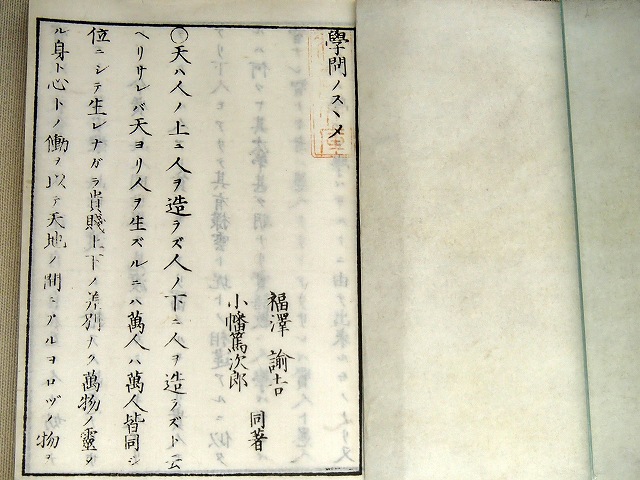 學問ノスヽメ
福澤諭吉
小幡篤次郎
同著
○天ハ人ノ上ニ人ヲ造ラズ人ノ下ニ人ヲ造ラズト云
ヘリサレバ天ヨリ人ヲ生ズルニハ萬人ハ萬人皆同シ
位ニシテ生レナガラ貴賤上下ノ差別ナク萬物ノ靈タ
ル身ト心トノ働ヲ以テ天地ノ間ニアルヨロヅノ物ヲ